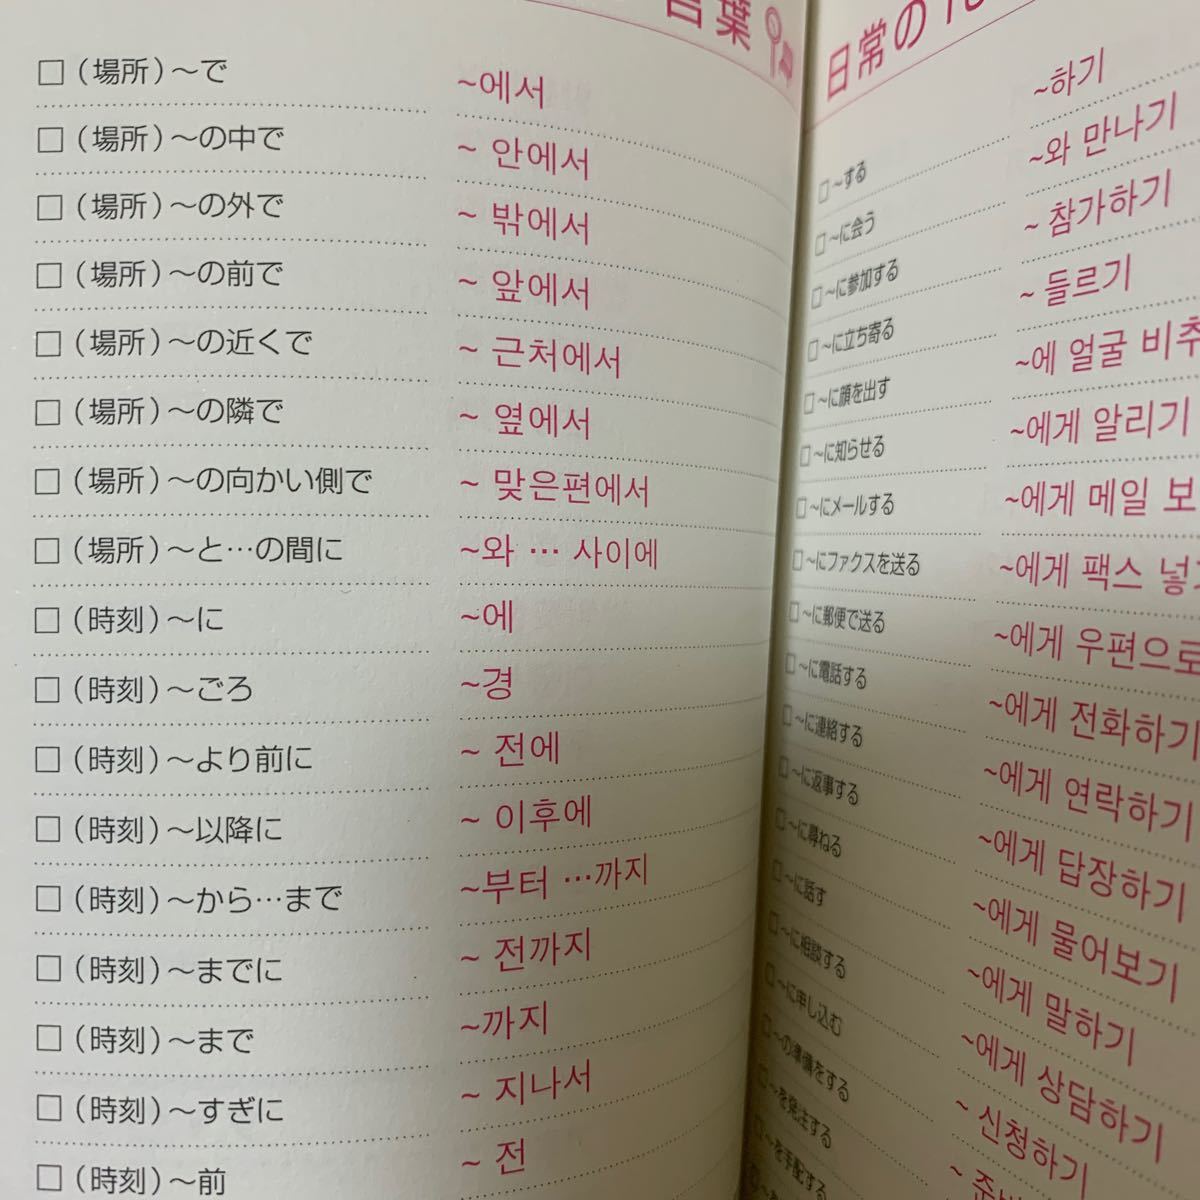 言葉
□（場所）～で ~에서
□（場所）～の中で ~ 안에서
□（場所）～の外で ~ 밖에서
□（場所）～の前で ~ 앞에서
□（場所）～の近くで ~ 근처에서
□（場所）～の隣で ~ 옆에서
□（場所）～の向かい側で ~ 맞은편에서
□（場所）～と…の間に ~와 … 사이에
□（時刻）～に ~에
□（時刻）～ごろ ~경
□（時刻）～より前に ~ 전에
□（時刻）～以降に ~ 이후에
□（時刻）～から…まで ~부터 …까지
□（時刻）～までに ~ 전까지
□（時刻）～まで ~까지
□（時刻）～すぎに ~ 지나서
□（時刻）～前 ~ 전
日常の
□～する ~하기
□～に会う ~와 만나기
□～に参加する ~ 참가하기
□～に立ち寄る ~ 들르기
□～に顔を出す ~에 얼굴 비추
□～に知らせる ~에게 알리기
□～にメールする ~에게 메일 보
□～にファクスを送る ~에게 팩스 넣
□～に郵便で送る ~에게 우편으로
□～に電話する ~에게 전화하기
□～に連絡する ~에게 연락하기
□～に返事する ~에게 답장하기
□～に尋ねる ~에게 물어보기
□～に話す ~에게 말하기
□～に相談する ~에게 상담하기
□～に申し込む ~ 신청하기
□～の準備をする ~
□～を発注する
□～を手配する